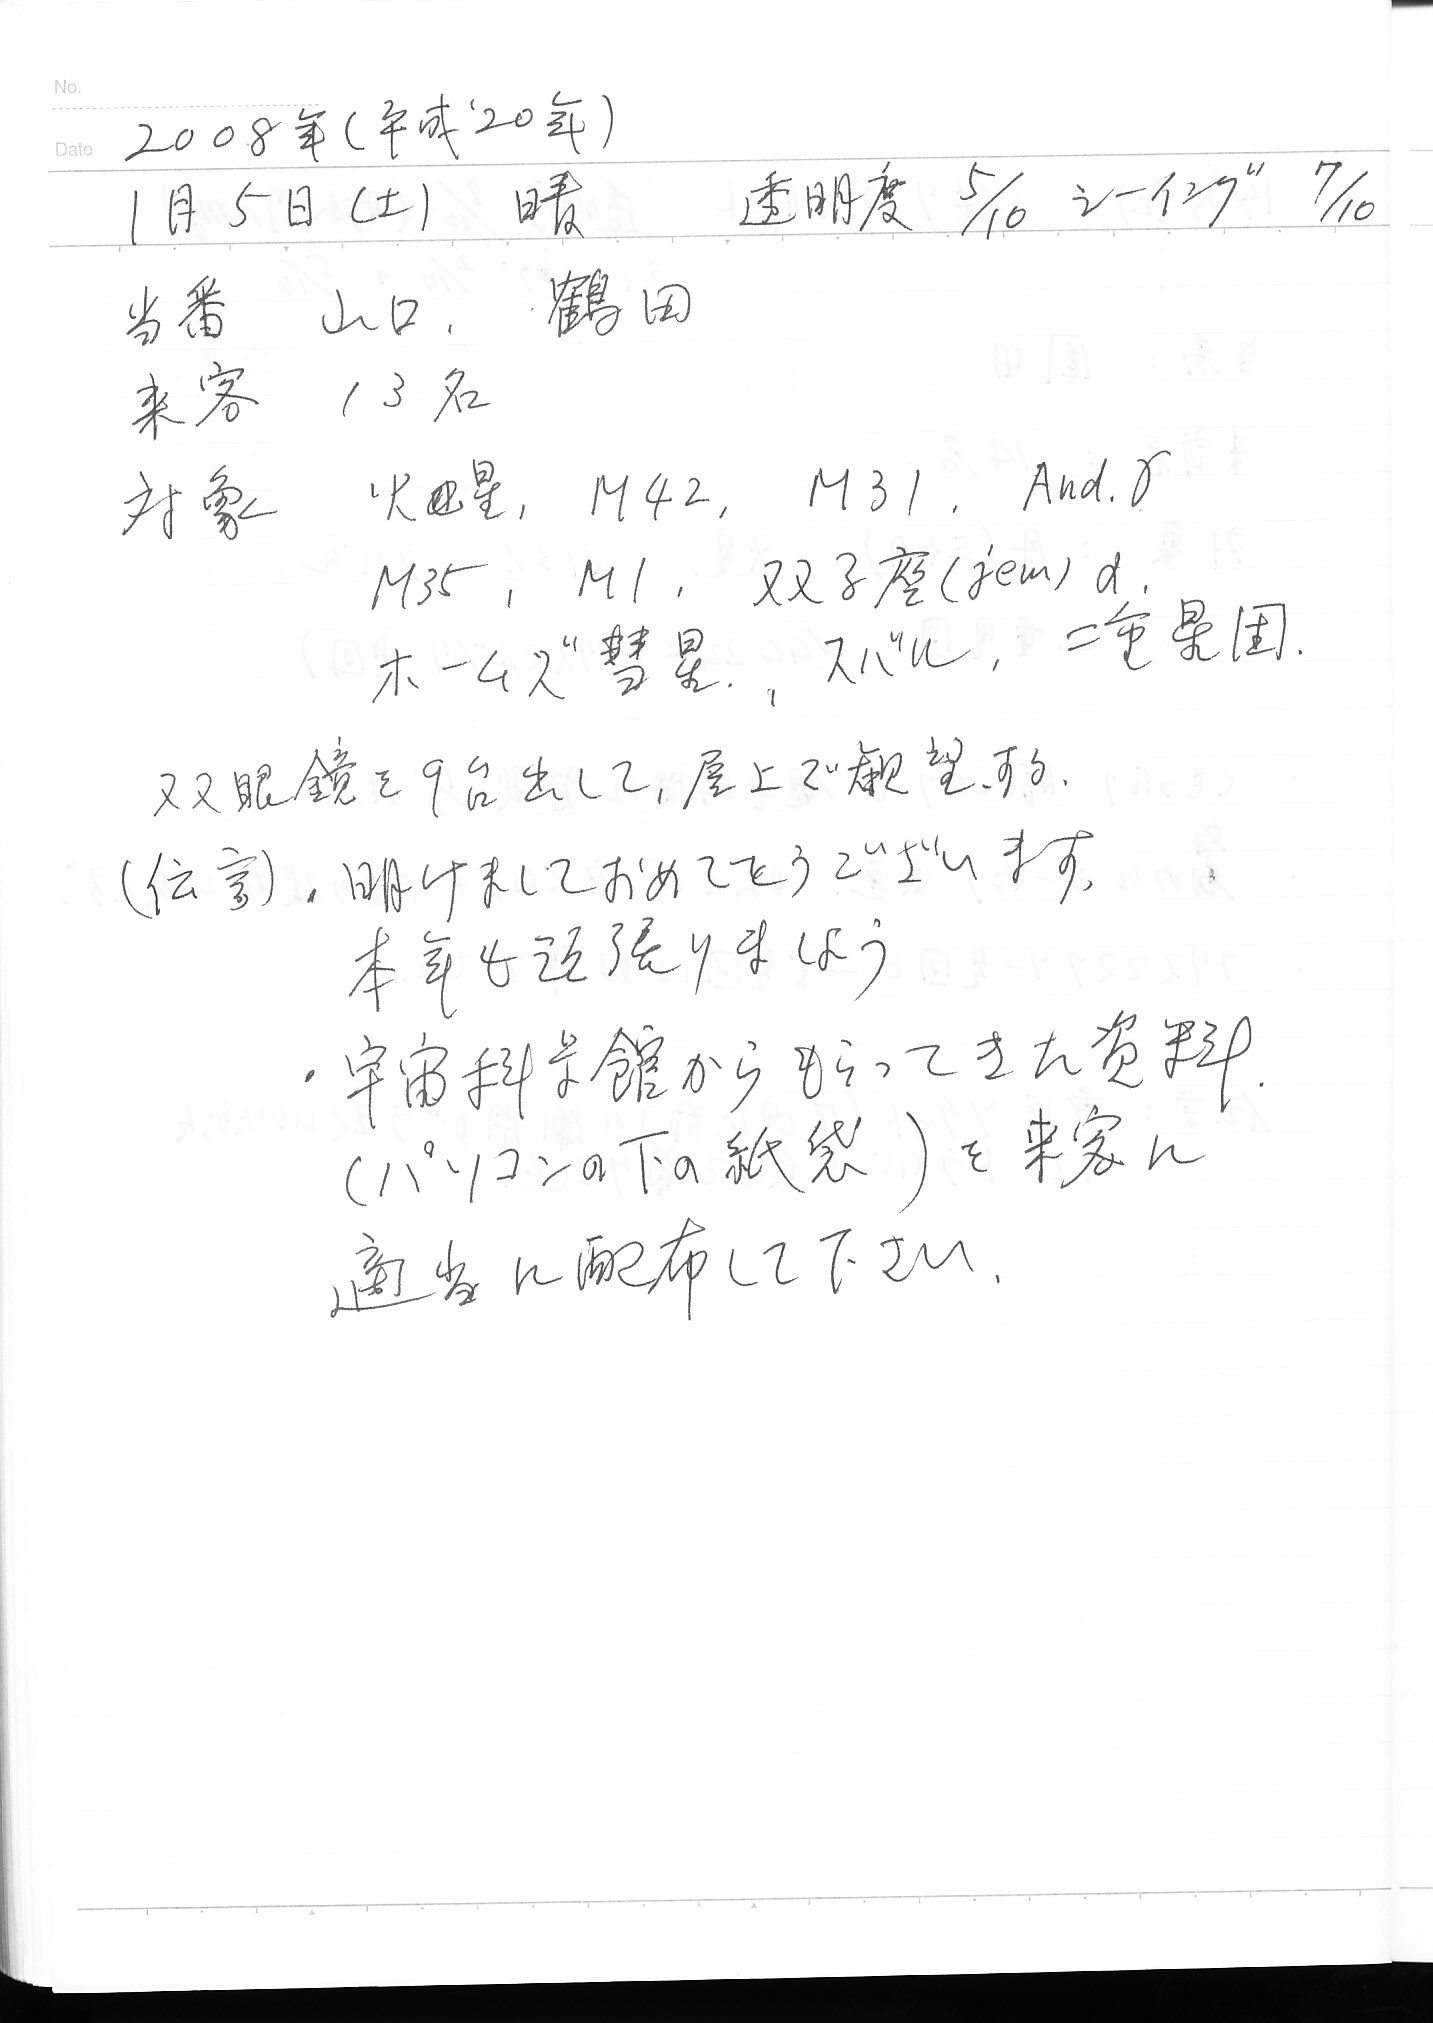 No.
2008年(平成20年)
Date
1月5日(土) 晴 透明度 5/10 シーイング 7/10
当番 山口, 鶴田
来客 13名
対象 火星, M42, M31, And.γ
M35, M1, 双子座(jem)α,
ホームズ彗星, スバル, 二重星団.
双眼鏡を9台出して,屋上で観望する.
(伝言)・明けましておめでとうございます,
本年も頑張りましょう
・宇宙科学館からもらってきた資料.
(パソコンの下の紙袋)を来客に
適当に配布して下さい.